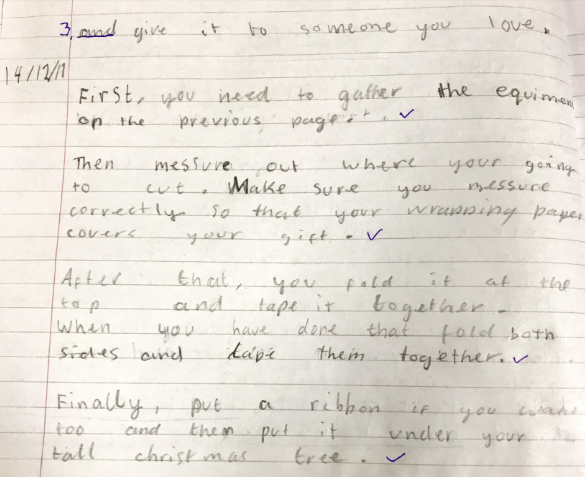 3. and give it to someone you love.
14/12/17
First, you need to gather the equimen
on the previous page.
Then messure out where your going
to cut. Make sure you messure
correctly so that your wrapping paper
covers your gift.
After that, you fold it at the
top and tape it together.
When you have done that fold both
sides and tape them together.
Finally, put a ribbon if you want
too and then put it under your
tall christmas tree.